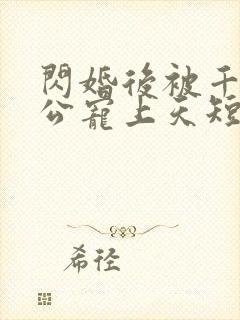 閃婚後被千
公寵上天短
希徑